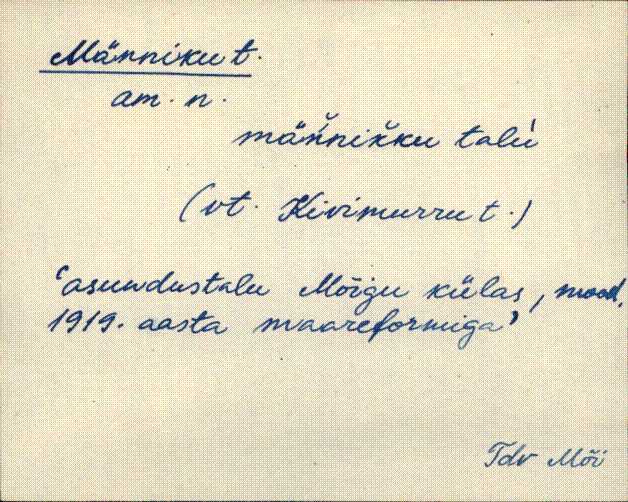 Männiku t.
am. n.
männikku talu
(vt. Kivimurru t.)
'asundustalu Mõigu külas, mood.
1919. aasta maareformiga'
Tdv Mõi